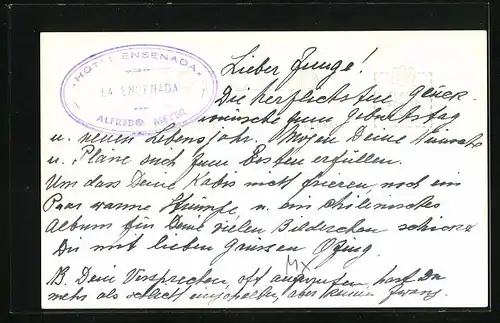 HOTEL ENSENADA
LA ENSENADA
ALFREDO
Lieber Junge!
Die herzlichsten Glück-
wünsche zum Geburtstag
u. neuen Lebensjahr. Mögen Deine Wünsche
u. Pläne sich zum Besten erfüllen.
Um dass Deine nicht frieren, noch ein
Paar warme Strümpfe u. ein chilenisches
Album für Deine vielen Bilderchen schickt
Dir mit lieben Grüssen
NB. Dein Versprechen, oft anzurufen, hast Du
mehr als schlecht eingehalten, aber keinen Zwang.